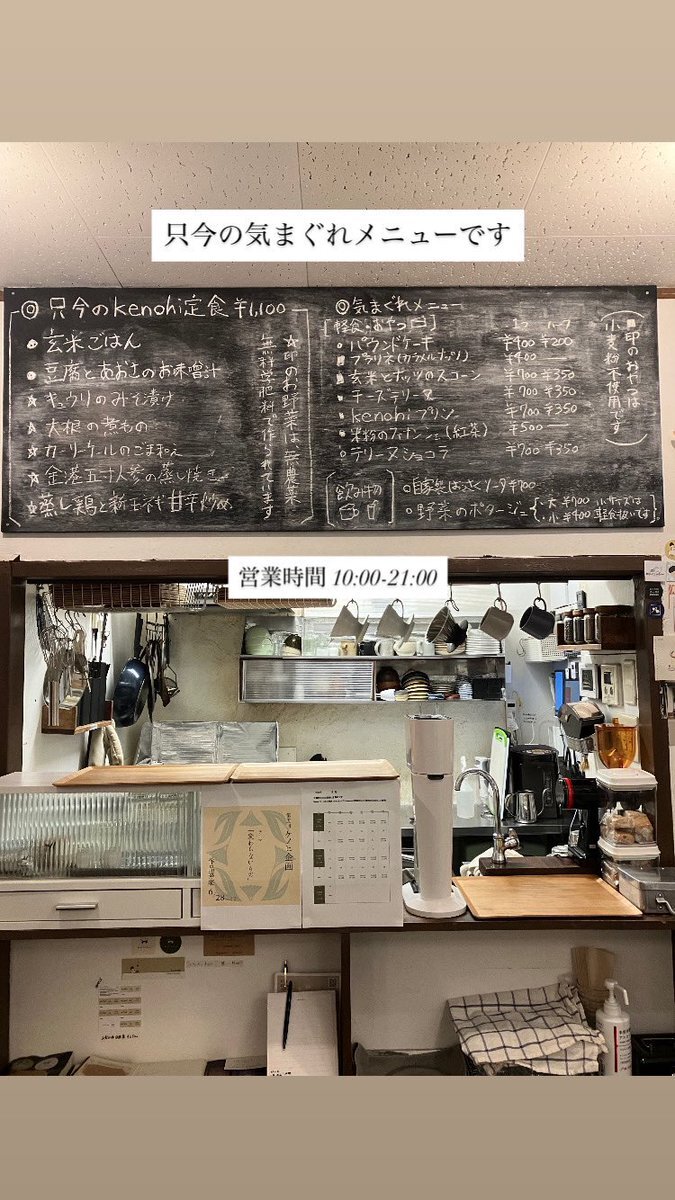 只今の気まぐれメニューです
◎ 只今のkenohi定食 ¥1,100
• 玄米ごはん
• 豆腐とあおさのお味噌汁
☆ キュウリのみそ漬け
☆ 大根の煮もの
☆ カーリーケールのごま和え
☆ 金港五寸人参の蒸し焼き
☆ 蒸し鶏と新玉ねぎ甘辛炒め
☆印のお野菜は、無農薬
無科学肥料で作られてます
◎気まぐれメニュー
[軽食・おやつ] 1コ ハーフ
○ パウンドケーキ ¥400 ¥200
■ プラリネ(カラメルナッツ) ¥400 —
■ 玄米とナッツのスコーン ¥700 ¥350
• チーズテリーヌ ¥700 ¥350
■ kenohiプリン ¥700 ¥350
■ 米粉のフィナンシェ(紅茶) ¥500 —
○ テリーヌショコラ ¥700 ¥350
(■印のおやつは
小麦粉不使用です)
飲みもの
○自家製はっさくソーダ ¥700
○野菜のポタージュ
・大 ¥700 小サイズは
・小 ¥400 軽食扱いです
営業時間 10:00-21:00
ケノヒ企画
28